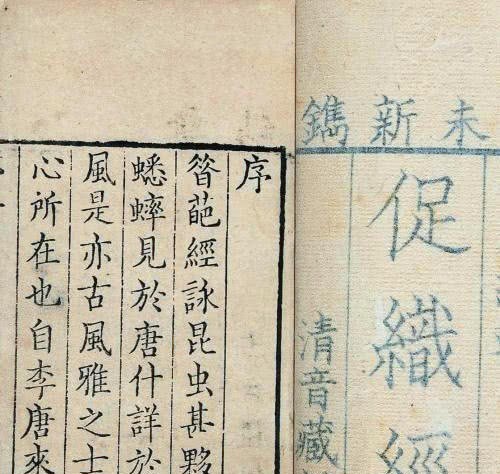 未新鐫
促織經
清音藏
序
昝葩經詠昆虫甚夥
蟋蟀見於唐什詳於
風是亦古風雅之士
心所在也自李唐來